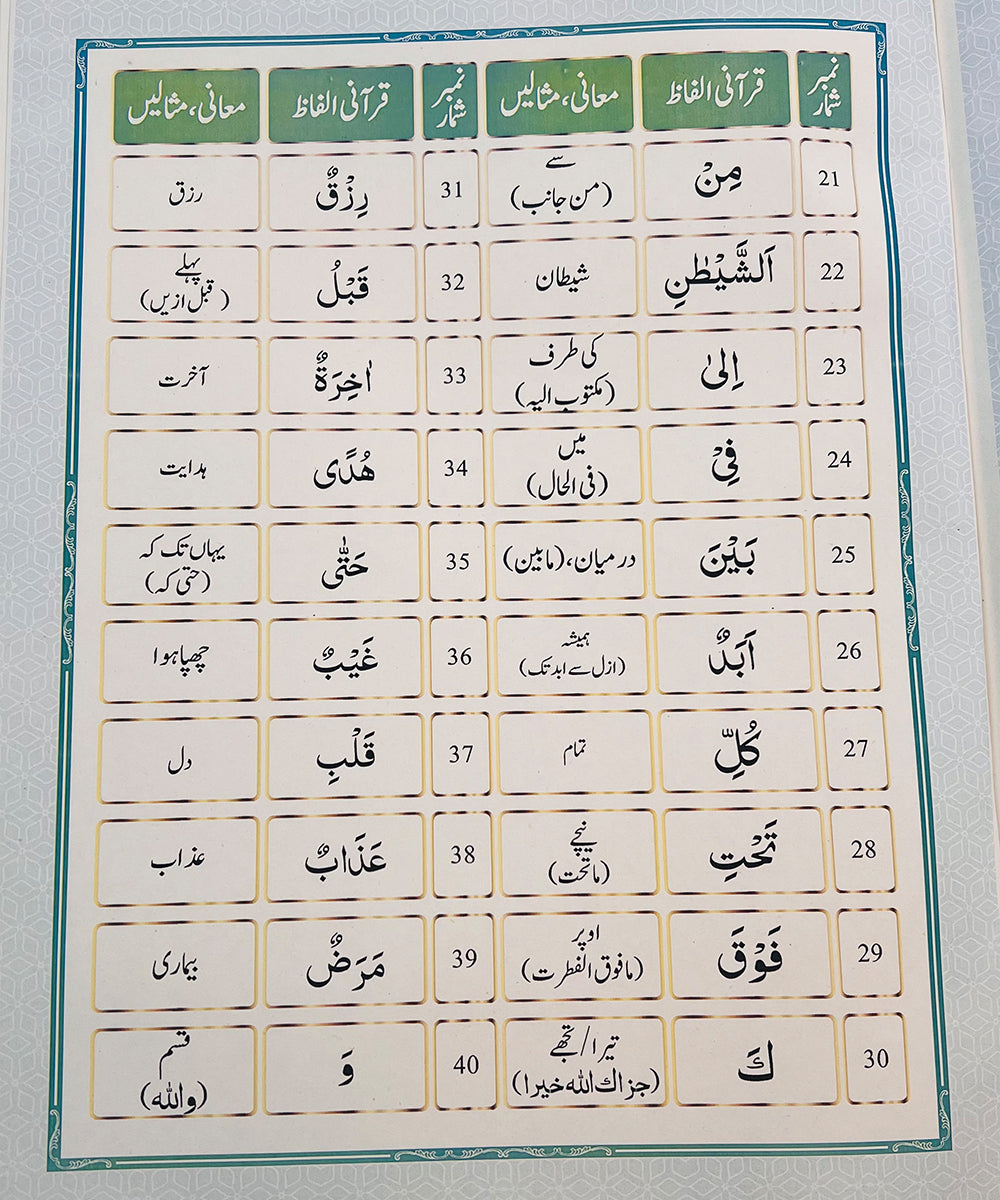 نمبر شمار قرآنی الفاظ معانی، مثالیں نمبر شمار قرآنی الفاظ معانی، مثالیں
21 مِنْ سے (من جانب) 31 رِزْقٌ رزق
22 اَلشَّيْطٰنِ شیطان 32 قَبْلُ پہلے (قبل ازیں)
23 اِلىٰ کی طرف (مکتوب الیہ) 33 اٰخِرَةٌ آخرت
24 فِيْ میں (فی الحال) 34 هُدًى ہدایت
25 بَيْنَ درمیان، (مابین) 35 حَتّٰى یہاں تک کہ (حتی کہ)
26 اَبَدٌ ہمیشہ (ازل سے ابد تک) 36 غَيْبٌ چھپا ہوا
27 كُلِّ تمام 37 قَلْبِ دل
28 تَحْتِ نیچے (ماتحت) 38 عَذَابٌ عذاب
29 فَوْقَ اوپر (مافوق الفطرت) 39 مَرَضٌ بیماری
30 كَ تیرا/تجھے (جزاك الله خيرا) 40 وَ قسم (والله)